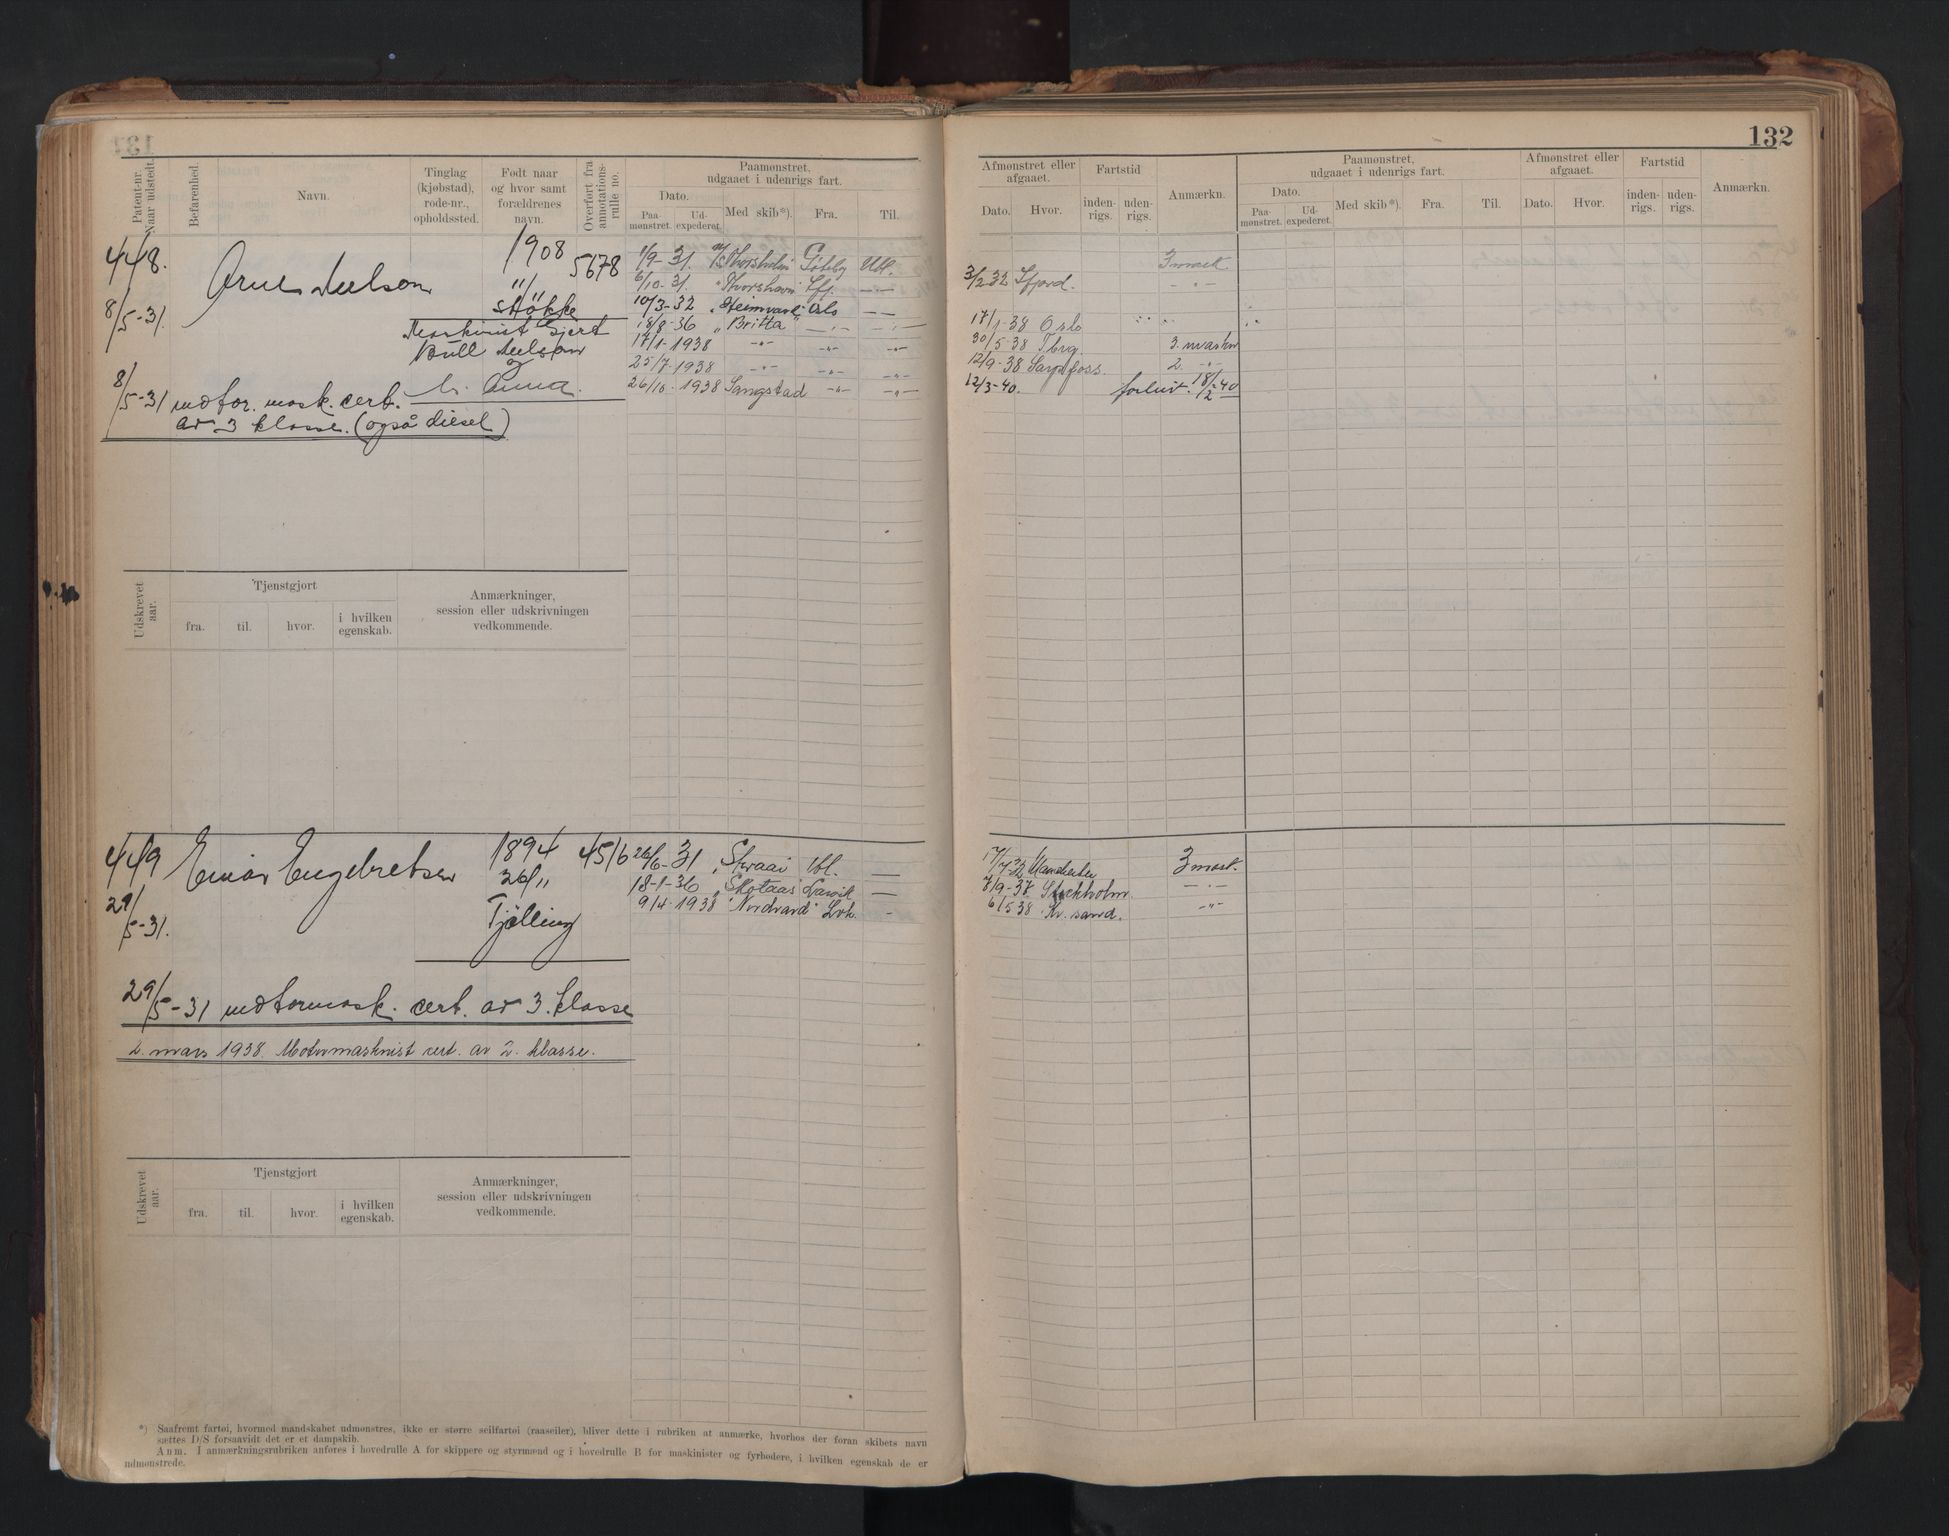 132
Patent-nr. Naar udstedt.
Befarenhed.
Navn.
Tinglag (kjøbstad), rode-nr., opholdssted.
Født naar og hvor samt forældrenes navn.
Overført fra annotations-rulle no.
Paamønstret, udgaaet i udenrigs fart.
Dato.
Paa-mønstret. Ud-expederet.
Med skib*).
Fra.
Til.
Afmønstret eller afgaaet.
Dato. Hvor.
Fartstid
inden-rigs. uden-rigs.
Anmærkn.
Paamønstret, udgaaet i udenrigs fart.
Dato.
Paa-mønstret. Ud-expederet.
Med skib*). Fra. Til.
Afmønstret eller afgaaet.
Dato. Hvor.
Fartstid
inden-rigs. uden-rigs.
Anmærkn.
448.
8/5-31.
Arne Nelson
1908
"
Stokke
5678
Maskinist Gjert
Bull Nelson
Anna.
8/5-31 motor. mask. cert.
av 3 klasse. (også diesel)
1/9-31. M/S Thorsholm Göteby Utl.
6/10-31. " Thorshavn Sfj. -"-
10/3-32 " Heimvard Oslo -"-
18/8-36 " Britta" -"- -"-
17/1-1938 -"- -"- -"-
25/7-1938 -"- -"- -"-
26/10-1938 Sangstad -"- -"-
3 mask
3/2 32 Sfjord. -"-
17/1-38 Oslo
30/5-38 Tbrg. 3. maskn
12/9-38 Sarpfoss. 2. -"-
12/3-40. forlist. 18/2-40
Udskrevet aar.
Tjenstgjort
fra. til. hvor. i hvilken egenskab.
Anmærkninger, session eller udskrivningen vedkommende.
449
29/5-31.
Einar Engebretsen
1894
26/"
Tjølling
4516
26/6-31 " Skraai Utl. -
18-1-36 " Skotaas Larvik -
9/4-1938 "Nordvard" Lvk. -
17/7-32 Manchester 3 mask.
7/9-37 Stockholm. -"-
6/5 38 Kr. sand. -"-
29/5-31 motormask. cert. av 3. klasse
2. mars 1938. Motormaskinist cert. av 2. klasse.
Udskrevet aar.
Tjenstgjort
fra. til. hvor. i hvilken egenskab.
Anmærkninger, session eller udskrivningen vedkommende.
*) Saafremt fartøi, hvormed mandskabet udmønstres, ikke er større seilfartøi (raaseiler), bliver dette i rubriken at anmærke, hvorhos der foran skibets navn
sættes D/S forsaavidt det er et dampskib.
Anm. I anmærkningsrubriken anføres i hovedrulle A for skippere og styrmænd og i hovedrulle B for maskinister og fyrbødere, i hvilken egenskab de er
udmønstrede.